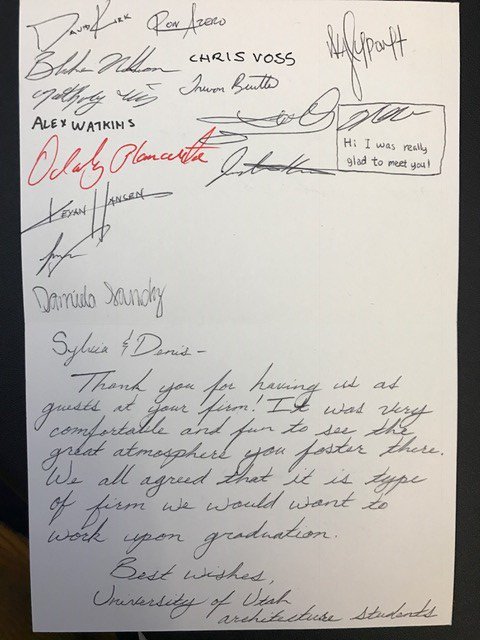 David Kirk Ron Azero
CHRIS VOSS
Trevor
ALEX WATKINS
Hi I was really
glad to meet you!
HANSEN
Daniela
Sylvia & Denis -
Thank you for having us as
guests at your firm! It was very
comfortable and fun to see the
great atmosphere you foster there.
We all agreed that it is type
of firm we would want to
work upon graduation.
Best wishes,
University of Utah
architecture students